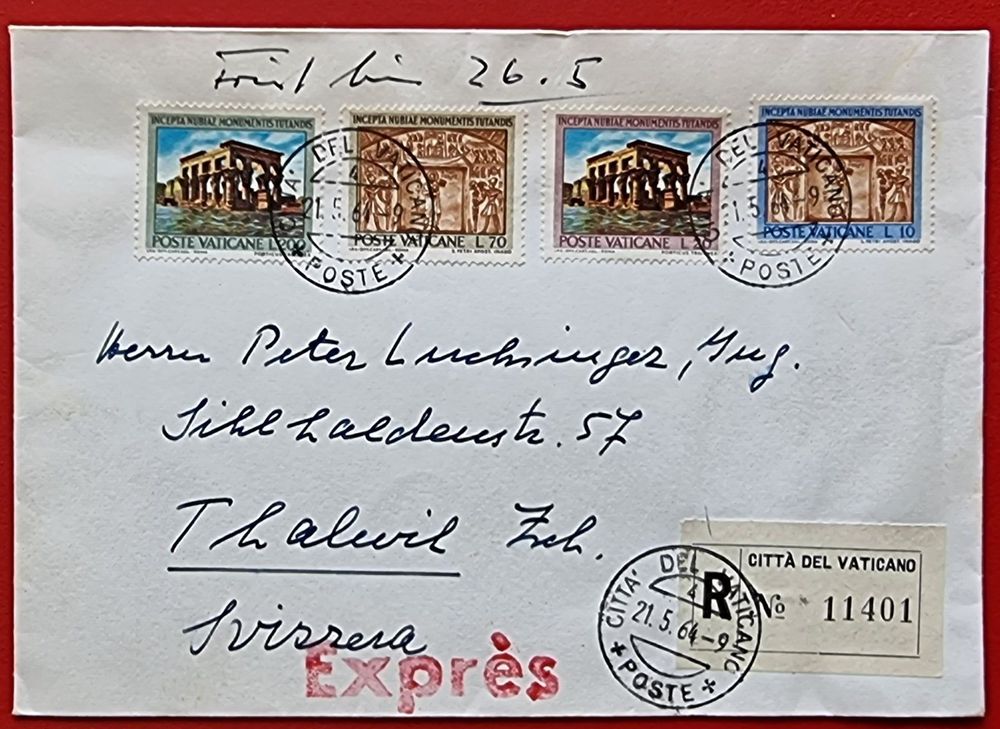 Frist bis 26.5
INCEPTA NUBIAE MONUMENTIS TUTANDIS
POSTE VATICANE L.200
INCEPTA NUBIAE MONUMENTIS TUTANDIS
POSTE VATICANE L. 70
INCEPTA NUBIAE MONUMENTIS TUTANDIS
POSTE VATICANE L. 20
INCEPTA NUBIAE MONUMENTIS TUTANDIS
POSTE VATICANE L. 10
DEL VATICANO
4
21.5.64-9
POSTE
DEL VATICANO
4
21.5.64-9
POSTE
Herrn Peter Luchsinger, Ing.
Sihlhaldenstr. 57
Thalwil Zch.
Svizzera
Exprès
CITTÀ DEL VATICANO
R No 11401
CITTA' DEL VATICANO
4
21.5.64-9
POSTE